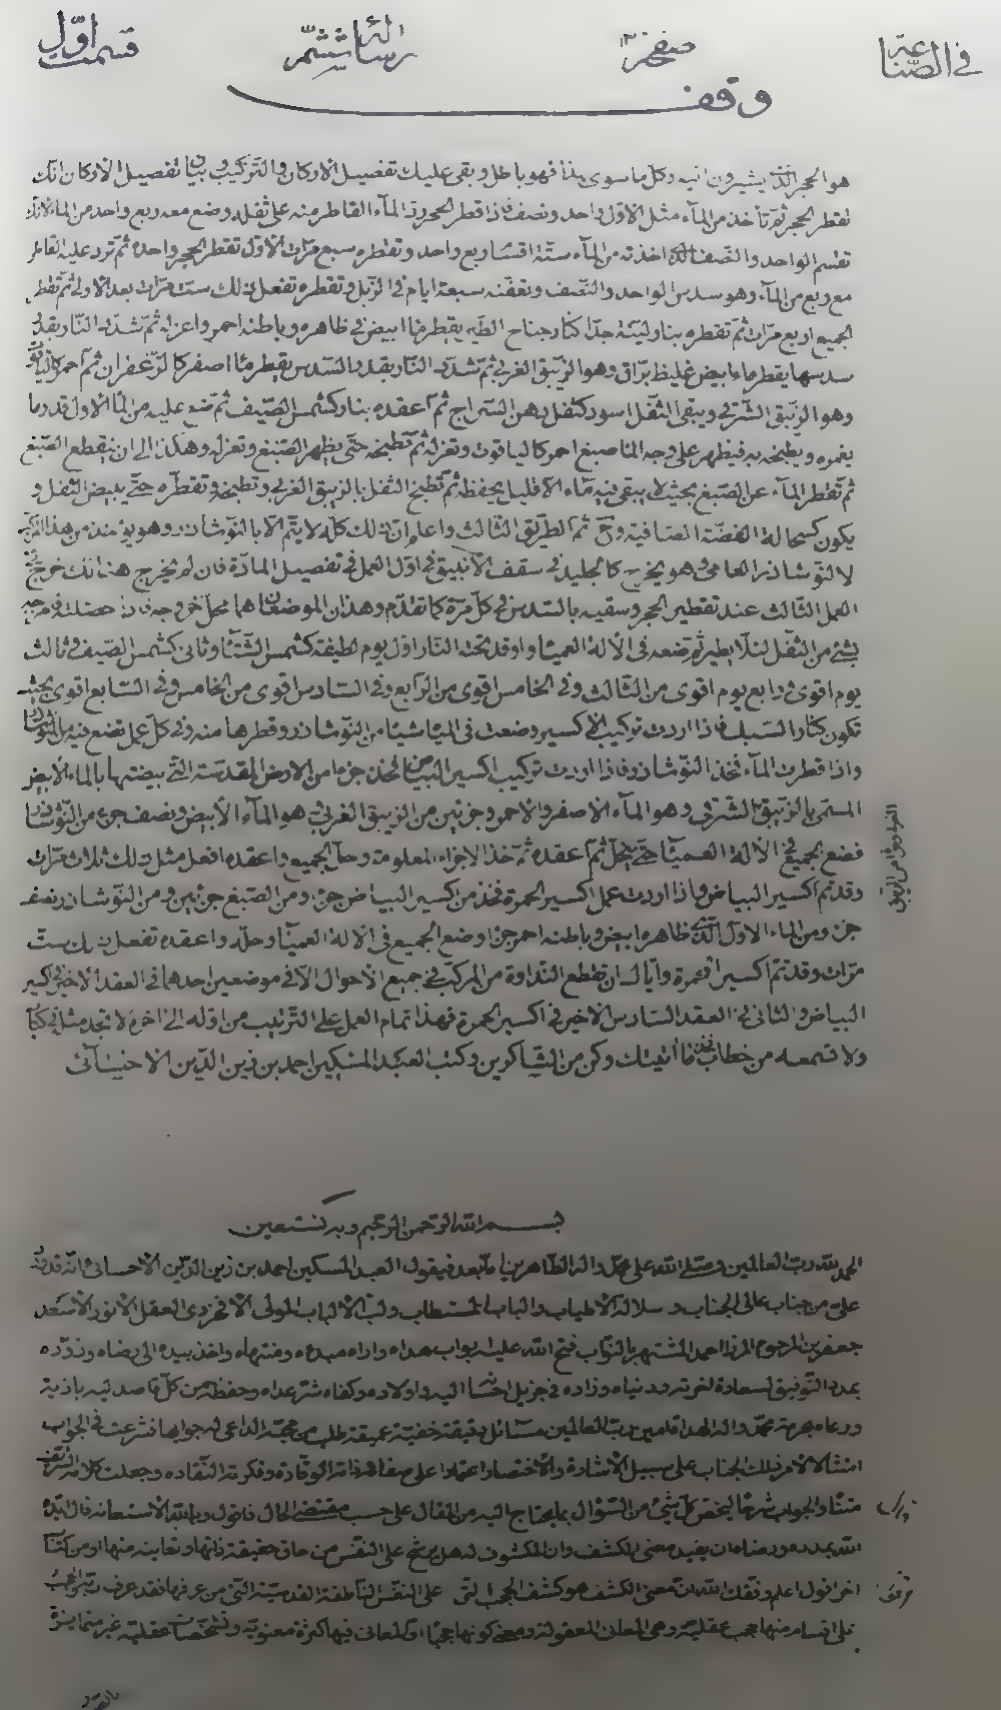 في الصناعة
صفحة
رسالة
قسمت اوّل
وقف
هو الحجر الذى يشيرون اليه وكلّ ما سوى هذا فهو باطل وبقى عليك تفصيل الاركان والتركيب وبيان تفصيل الاركان انك
تقطر الحجر ثم تأخذ من المآء مثل الاوّل واحد ونصف فاذا قطر الحجر رد المآء القاطر منه على ثفله وضع معه ربع واحد من الماء لانك
تقسم الواحد والنصف الذى اخذته من المآء ستّة اقسام ربع واحد وتقطره سبع مرّات الاوّل تقطر الحجر واحدة ثمّ تردّ عليه القاطر
مع ربع من المآء وهو سدس الواحد والنصف وتعفنه سبعة ايام في الزبل وتقطره تفعل ذلك ستّ مرّات بعد الاولى ثمّ تقطر
الجميع اربع مرّات ثمّ تقطره بنار ليّنة جدّا كنار جناح الطير يقطر ماء ابيض في ظاهره وباطنه احمر واعزله ثمّ شدّد النّار بقدر
سدسها يقطر ماء ابيض غليظ برّاق وهو الزيبق الغربي ثمّ شدّد النّار بقدر السّدس يقطر ماء اصفر كالزّعفران ثم احمر كالياقوت
وهو الزيبق الشّرقي ويبقى الثّفل اسود كثفل دهن السّراج ثمّ اعقده بنار كشمس الصّيف ثمّ ضع عليه من الماء الاول قدر ما
يغمره ويطبخه به فيظهر على وجه الماء صبغ احمر كالياقوت وتعزله ثمّ تطبخه حتّى يظهر الصّبغ وتعزله وهكذا الى ان ينقطع الصّبغ
ثم تقطر المآء عن الصّبغ بحيث لا يبقى فيه مآء الّا قليل يحفظه ثمّ تطبخ الثفل بالزيبق الغربي وتطبخه وتقطّره حتّى يبيض الثفل و
يكون كسحالة الفضّة الصافية وحّ ثم الطريق الثالث واعلم انّ ذلك كلّه لا يتمّ الّا بالنوشادر وهو يؤخذ من هذا المركّب
لا النوشادر العامي وهو يخرج كالجليد في سقف الانبيق في اوّل العمل في تفصيل المادّة فان لم يخرج هناك خرج في
العمل الثالث عند تقطير الحجر وسقيه بالسّدس في كلّ مرّة كما تقدّم وهذان الموضعان هما محلّ خروجه فاذا حصلت
بشئ من الثّفل لئلّا يطير ثم ضعه في الآلة العميا واوقد تحته النّار اوّل يوم لطيفة كشمس الشّتآء وثاني كشمس الصّيف وثالث
يوم اقوى ورابع يوم اقوى من الثّالث وفي الخامس اقوى من الرّابع وفي السّادس اقوى من الخامس وفي السّابع اقوى بحيث
تكون كنار السّبك فاذا اردت تركيب الاكسير وضعت في الميا شيئا من النّوشادر وقطرها منه وفي كلّ عمل تضع فيه من النوشادر
واذا قطرت المآء فخذ النّوشادر فاذا اردت تركيب اكسير البياض فخذ جزءا من الارض المقدسة التي بيضتها بالماء الابيض
المسمّى بالزيبق الشّرقي وهو المآء الاصفر والاحمر وجزئين من الزيبق الغربي وهو المآء الأبيض ونصف جزء من النّوشادر
فضع الجميع في الآلة العميآ حتّى ينحلّ ثمّ اعقده ثمّ خذ الاجزاء المعلومة وحلّ الجميع واعقده افعل مثل ذلك ثلاث مرّات
وقد تمّ اكسير البياض واذا اردت عمل اكسير الحمرة فخذ من اكسير البياض جزء ومن الصّبغ جزئين ومن النّوشادر نصف
جزء ومن الماء الاول الّذى ظاهره ابيض وباطنه احمر جزءا وضع الجميع في الآلة العميآ وحلّه واعقده تفعل ذلك ستّ
مرّات وقد تمّ اكسير الحمرة وايّاك ان تقطع النّداوة من المركّب في جميع الاحوال الّا في موضعين احدهما في العقد الاخير في اكسير
البياض والثاني في العقد السّادس الاخير في اكسير الحمرة فهذا تمام العمل على التّرتيب من اوّله الى اخره لا تجد مثله في كتاب
ولا تسمعه من خطاب فخذ ما اتيتك وكن من الشّاكرين وكتب العبد المسكين احمد بن زين الدّين الاحسائى
بسم الله الرّحمن الرّحيم وبه نستعين
الحمد لله ربّ العالمين وصلّى الله على محمّد واله الطّاهرين امّا بعد فيقول العبد المسكين احمد بن زين الدّين الاحسائى انّه قد ورد
علىّ من جناب عالى الجناب وسلالة الاطياب والباب المستطاب ولبّ الالباب المولى الافخر ذى العقل الانور الاسعد
جعفر بن المرحوم المرزا احمد المشتهر بالنوّاب فتح الله عليه ابواب هداه واراه مبدءه ومنتهاه واخذ بيده الى رضاه وزوّده
بمدد التّوفيق لسعادة اخرته ودنياه وزاده في جزيل احسانه اليه واولاده وكفاه شرّ عداه وحفظه من كلّ قاصد اليه باذية
ورعاه بحرمة محمّد واله الهداة امين ربّ العالمين مسائل دقيقة خفيّة عميقة طلب من محبّه الداعى له جوابها فشرعت في الجواب
امتثالا لامر ذلك الجناب على سبيل الاشارة والاختصار اعتمادا على صفاء فطرته الوقّادة وفكرته النّقاده وجعلت كلامه الشّريف
متنا والجواب شرحا ليختصّ كلّ شئ من السّؤال بما يحتاج اليه من المقال على حسب مقتضى الحال فاقول وبالله الاستعانة قال ايّده
الله بمدده ورضاه ان يفيد معنى الكشف وان المكشوف له هل يرشح على النّفس من حاقّ حقيقة ذاتها وتعاينه منها او من كتاب
اخر اقول اعلم وفّقك الله انّ معنى الكشف هو كشف الحجب التى على النّفس النّاطقة القدسيّة الّتى من عرفها فقد عرف ربّه
على اقسام منها حجب عقليّة وهى المعانى المعقولة ومعنى كونها حجبا انّ المعانى فيها كثرة معنوية وتشخّصات عقليّة غير متمايزة